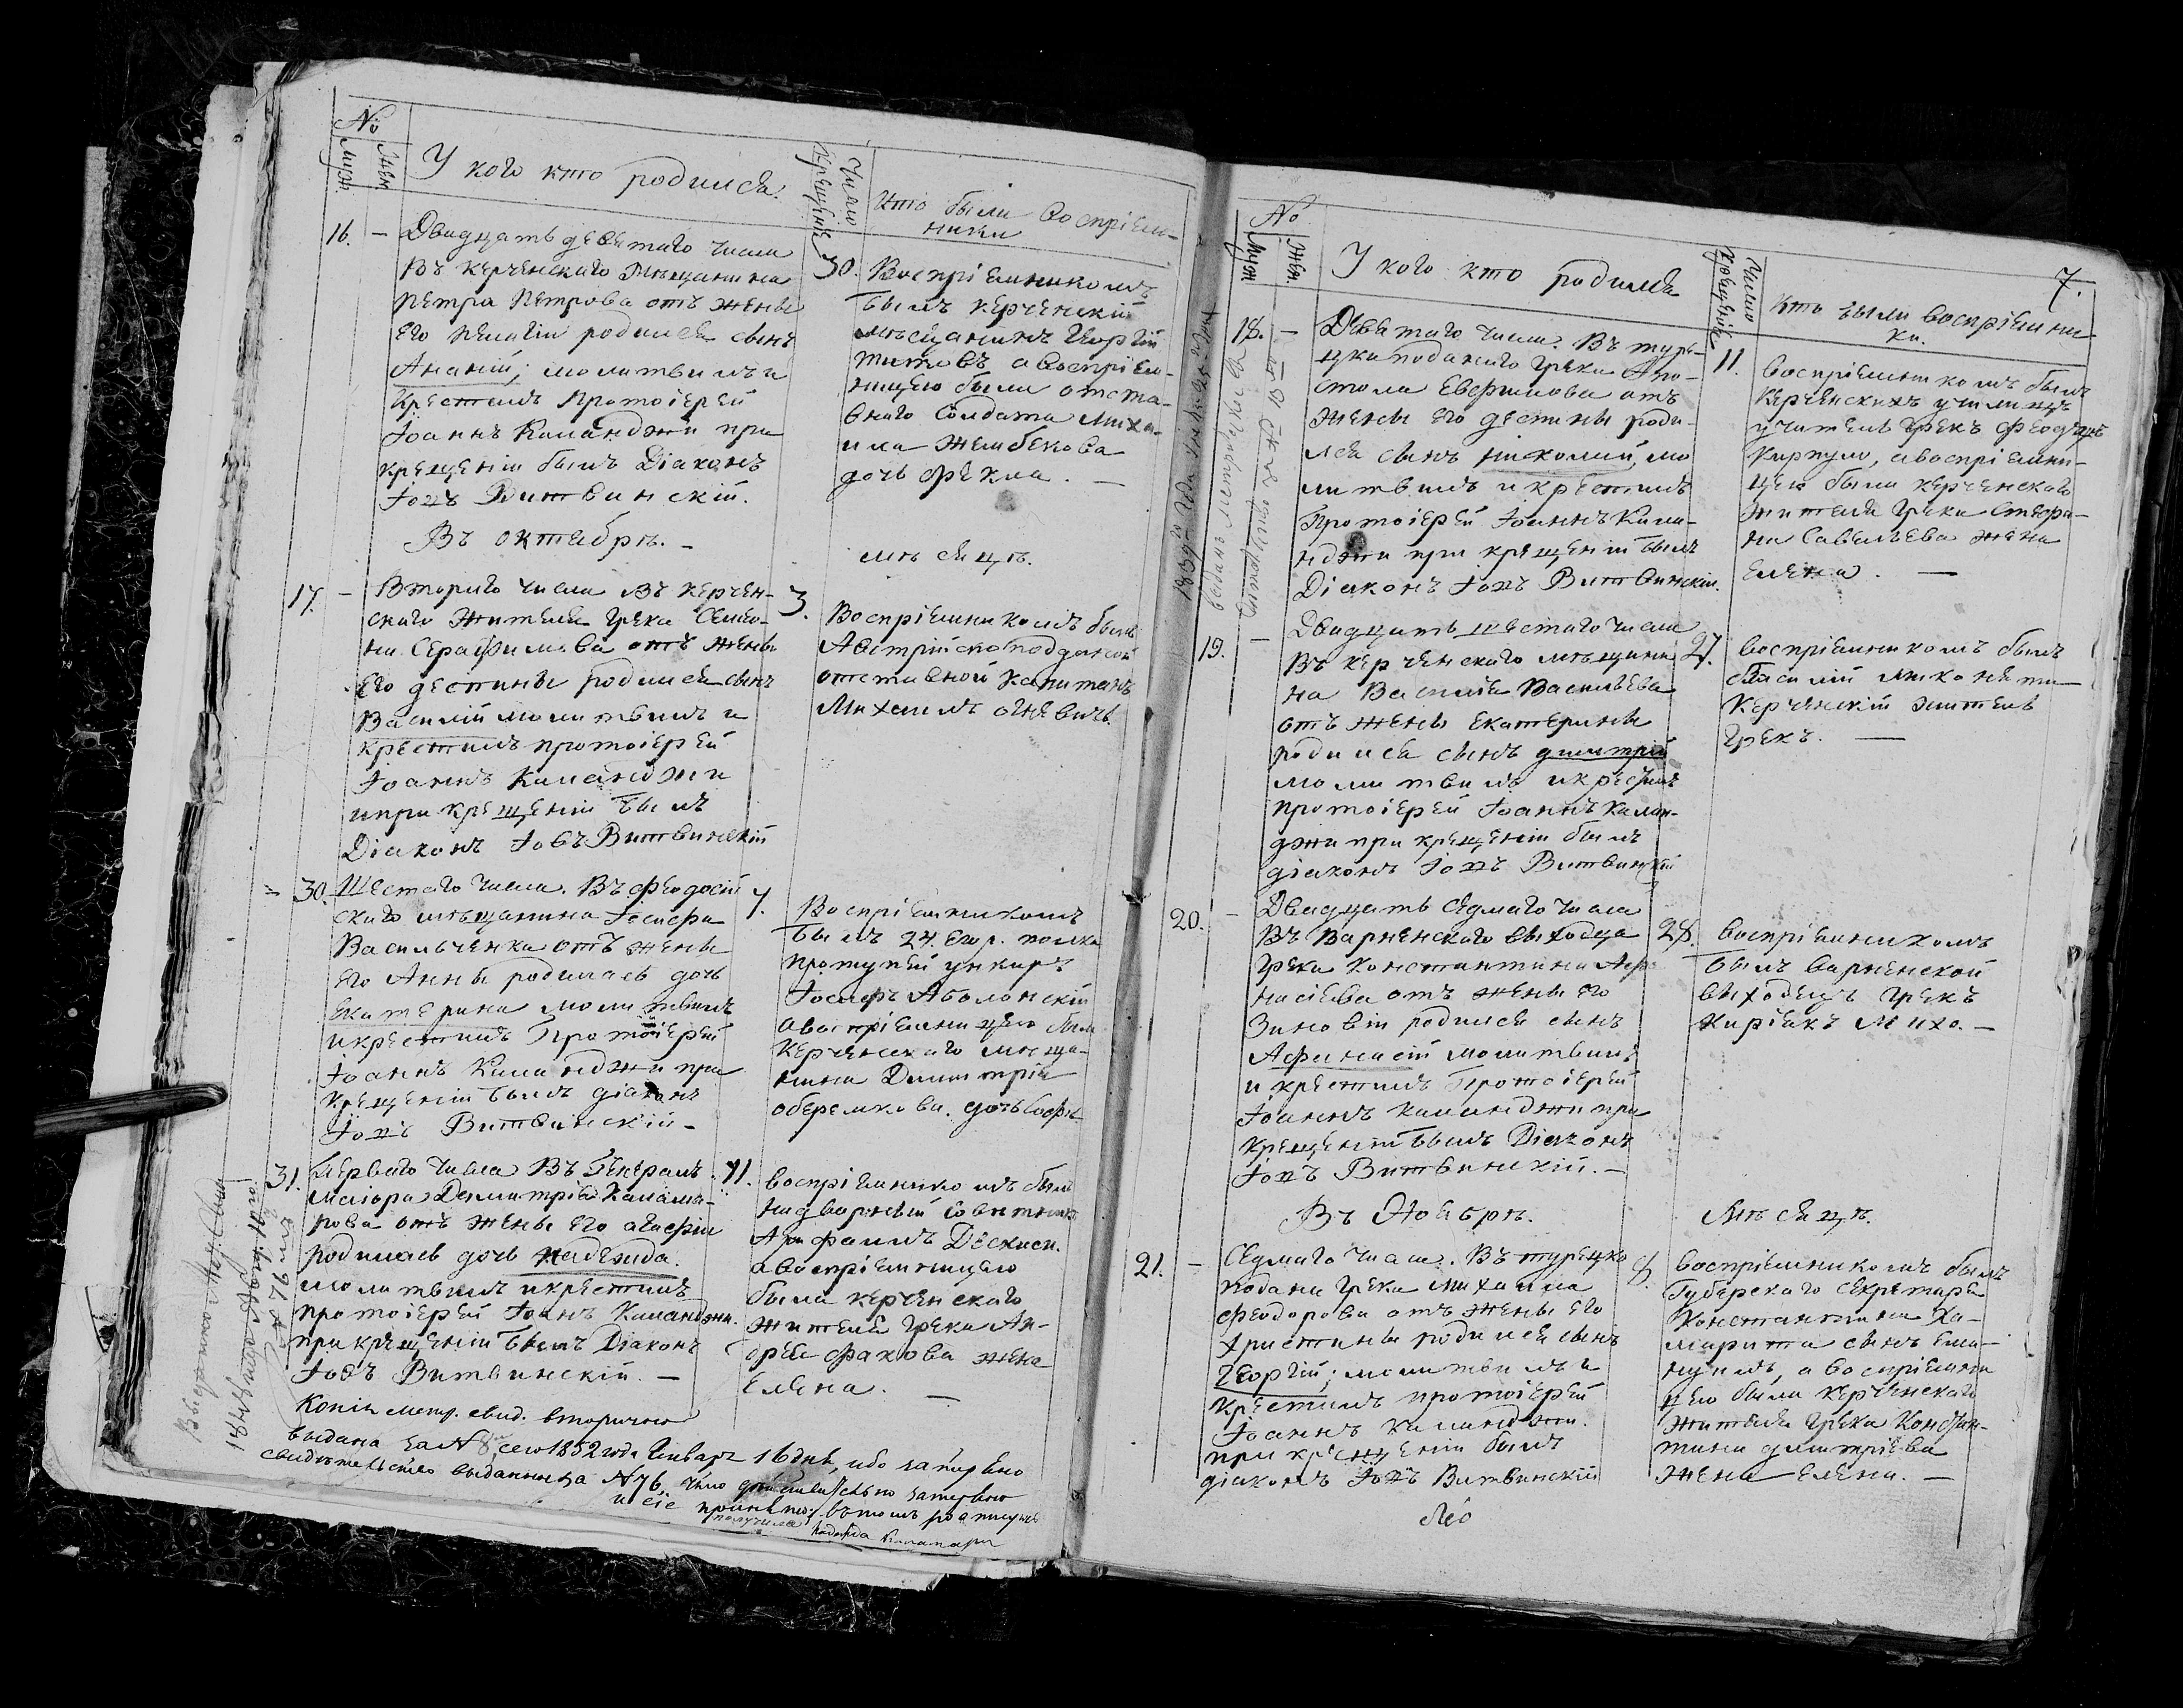 №
Муж. Жен.
У кого кто родился.
Число Крещенія
Кто были воспріем-
ники
16. –
Двадцать девятаго числа
Въ Керченскаго Мѣщанина
Петра Петрова отъ жены
его Пелагіи родился сынъ
Ананій; молитвилъ и
Крестилъ Протоіерей
Іоаннъ Каланджи при
крещеніи былъ Діаконъ
Іовъ Витвинскій.
30.
Воспріемникомъ
былъ Керченскій
мѣщанинъ Георгій
Титовъ а воспріем-
ницею была отста-
внаго Солдата Миха-
ила Жембекова
дочь Фекла. –
Въ октябрѣ. –
мѣсяцѣ.
17. –
Втораго числа Въ Керчен-
скаго Жителя Грека Симео-
на Серафимова отъ жены
его Деспины родился сынъ
Василій молитвилъ и
крестилъ протоіерей
Іоаннъ Каланджи
и при крещеніи былъ
Діаконъ Іовъ Витвинскій
3.
Воспріемникомъ былъ
Австрійско подданой
отставной Капитанъ
Михаилъ
– 30.
Шестаго числа. Въ Феодосій
скаго мѣщанина Іосифа
Васильченка отъ жены
его Анны родилась дочь
Екатерина молитвилъ
и крестилъ Протоіерей
Іоаннъ Каланджи при
Крещеніи былъ діаконъ
Іовъ Витвинскій –
7.
Воспріемникомъ
былъ 24. Егер. полка
портупей юнкиръ
Іосифъ Аболонскій
а воспріемницею была
Керченскаго мѣща-
нина Димитрія
Оберемкова. дочь Софія
31.
Перваго числа Въ Генералъ
Маіора Димитрія Каламa-
рова отъ жены его Агафіи
родилась дочь Надежда.
молитвилъ и крестилъ
протоіерей Іоанъ Каланджи.
при крещеніи былъ Діаконъ
Іовъ Витвинскій. –
11.
воспріемникомъ былъ
надворный Совѣтникъ
а воспріемницею
была керченскаго
жителя Грека Ан-
дрея Факова жена
Елена. –
Копія метр. свид. вторично
выдана за № 8 сего 1852 года Января 16 дня, ибо затеряно
свидѣтельство выданное за № 76, что дѣйствительно затеряно
и сіе принято въ томъ роспишусь
получила Надежда Каламара
7.
№
Муж Жен.
У кого кто родился
Число Крещенія
кто были воспріемни-
ки.
18. –
Девятаго числа. Въ туре-
цкаподанаго Грека Апо-
стола Евфимова отъ
жены его Деспины роди-
лся сынъ Николай, мо
литвилъ и крестилъ
Протоіерей Іоаннъ Кала-
нджи при крещеніи былъ
Діаконъ Іовъ Витвинскій.
11.
воспріемникомъ былъ
Керченскихъ училищъ
учитель Грекъ
а воспріемни-
цею была керченскаго
жителя Грека Стефа-
на Савельева жена
Елена. –
19. –
Двадцать шестаго числа
Въ керченскаго мѣщани
на Василія Васильева
отъ жены Екатерины
родился сынъ Димитрій
молитвилъ и крестилъ
протоіерей Іоаннъ Калан-
джи при крещеніи былъ
діаконъ Іовъ Витвинскій
27.
воспріемникомъ былъ
Керченскій житель
Грекъ. –
20. –
Двадцать седмаго числа
Въ Варненскаго выходца
Грека Константина Афа
насіева отъ жены его
Зиновіи родился сынъ
Афанасій молитвилъ
и крестилъ Протоіерей
Іоаннъ Каланджи при
крещеніи былъ Діаконъ
Іовъ Витвинскій. –
28.
воспріемникомъ
былъ варненской
выходецъ Грекъ
Киріакъ Михо. –
Въ Ноябрѣ.
Мѣсяцѣ.
21. –
Седмаго числа. Въ турецко
подани Грека Михаила
Феодорова отъ жены его
Христины родился сынъ
Георгій; молитвилъ и
Крестилъ протоіерей
Іоаннъ Каланджи.
при крещеніи былъ
діаконъ Іовъ Витвинскій
8.
воспріемникомъ былъ
Губерскаго Секретаря
Константина Ха-
сынъ Ема-
нуилъ, а воспріемни
цею была Керченскаго
жителя Грека Констан-
тина Димитріева
жена Елена. –